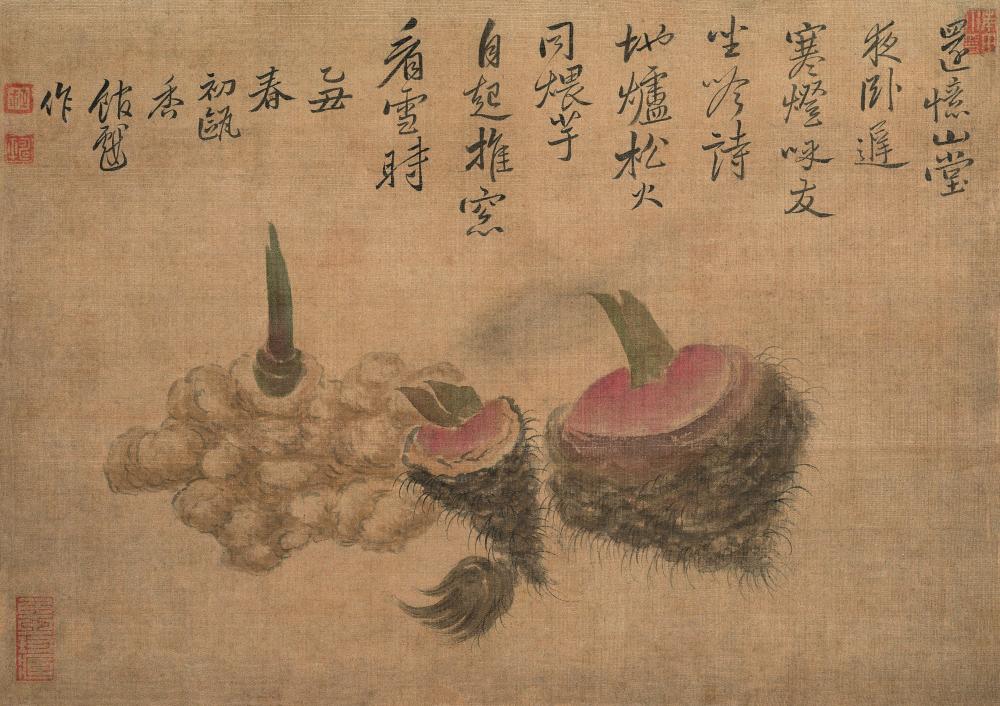 還憶山堂
夜卧遲
寒燈呼友
坐吟詩
地爐松火
同煨芋
自起推窓
看雪時
乙丑
春
初甌
香
館戲
作